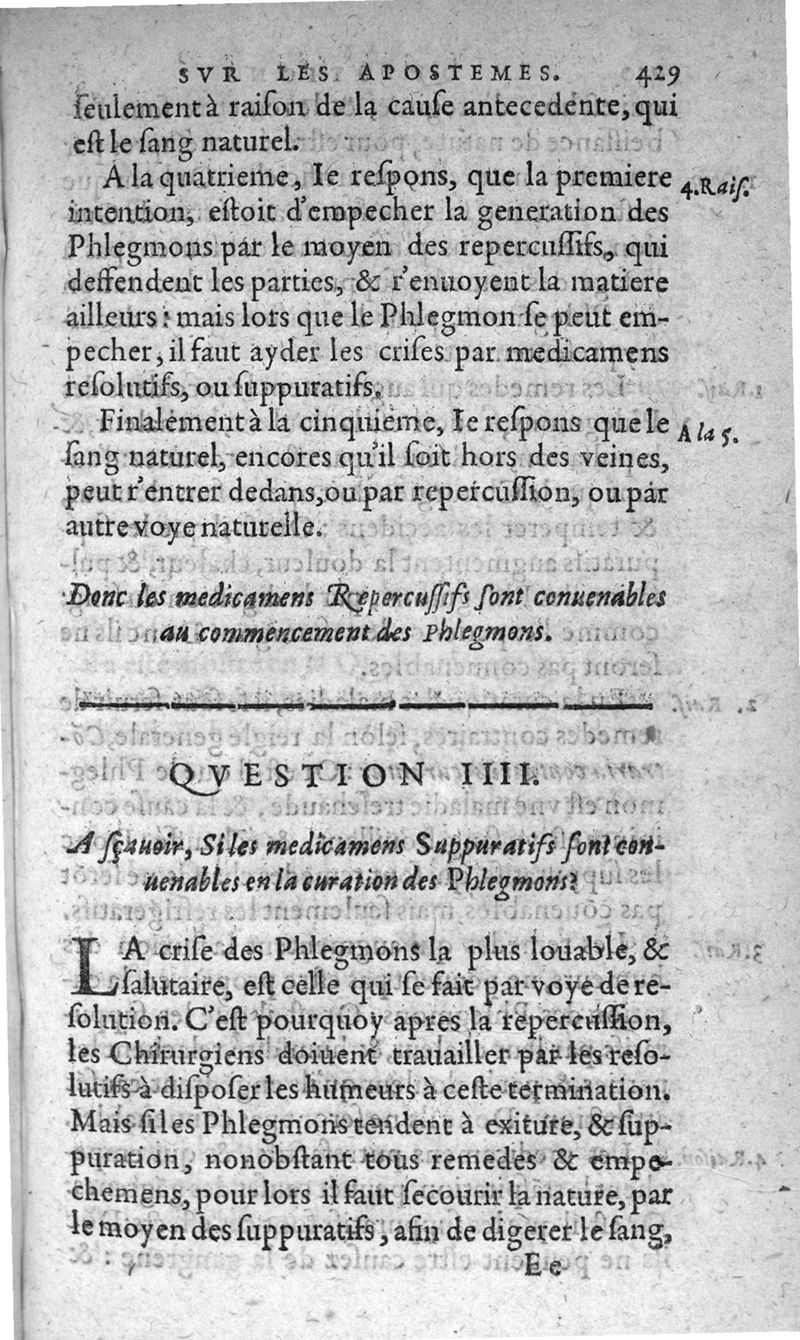 SVR LES APOSTEMES. 429
ſeulement à raiſon de la cauſe antecedente, qui
eſt le ſang naturel.
A la quatrieme, Ie reſpons, que la premiere
4. Raiſ.
intention, eſtoit d'empecher la generation des
Phlegmons par le moyen des repercuſſifs, qui
deffendent les parties, & r'enuoyent la matiere
ailleurs : mais lors que le Phlegmon ſe peut em-
pecher, il faut ayder les criſes par medicamens
reſolutifs, ou ſuppuratifs.
Finalement à la cinquieme, Ie reſpons que le
A la 5.
ſang naturel, encores qu'il ſoit hors des veines,
peut r'entrer dedans, ou par repercuſſion, ou par
autre voye naturelle.
Donc les medicamens Repercuſſifs ſont conuenables
au commencement des Phlegmons.
QVESTION IIII.
A ſçauoir, Si les medicamens Suppuratifs ſont con-
uenables en la curation des Phlegmons?
LA criſe des Phlegmons la plus louable, &
ſalutaire, eſt celle qui ſe fait par voye de re-
ſolution. C'eſt pourquoy apres la repercuſſion,
les Chirurgiens doiuent trauailler par les reſo-
lutifs à diſpoſer les humeurs à ceſte termination.
Mais ſi les Phlegmons tendent à exiture, & ſup-
puration, nonobſtant tous remedes & empe-
chemens, pour lors il faut ſecourir la nature, par
le moyen des ſuppuratifs, afin de digerer le ſang,
E e